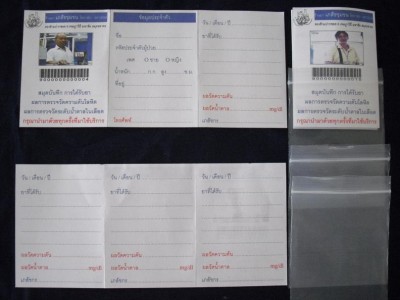 สมุดบันทึก การได้รับยา
ผลการตรวจวัดความดันโลหิต
ผลการตรวจวัดระดับน้ำตาลในเลือด
กรุณานำมาด้วยทุกครั้งที่มาใช้บริการ
ข้อมูลประจำตัว
เพศ ชาย หญิง
น้ำหนัก ก.ก สูง ซ.ม
ที่อยู่
โทรศัพท์
วัน / เดือน / ปี
ยาที่ได้รับ
ผลวัดความดัน
ผลวัดน้ำตาล mg/dl
เภสัชกร
สมุดบันทึก การได้รับยา
ผลการตรวจวัดความดันโลหิต
ผลการตรวจวัดระดับน้ำตาลในเลือด
กรุณานำมาด้วยทุกครั้งที่มาใช้บริการ
วัน / เดือน / ปี
ยาที่ได้รับ
ผลวัดความดัน
ผลวัดน้ำตาล mg/dl
เภสัชกร
วัน / เดือน / ปี
ยาที่ได้รับ
ผลวัดความดัน
ผลวัดน้ำตาล mg/dl
เภสัชกร
วัน / เดือน / ปี
ยาที่ได้รับ
ผลวัดความดัน
ผลวัดน้ำตาล mg/dl
เภสัชกร